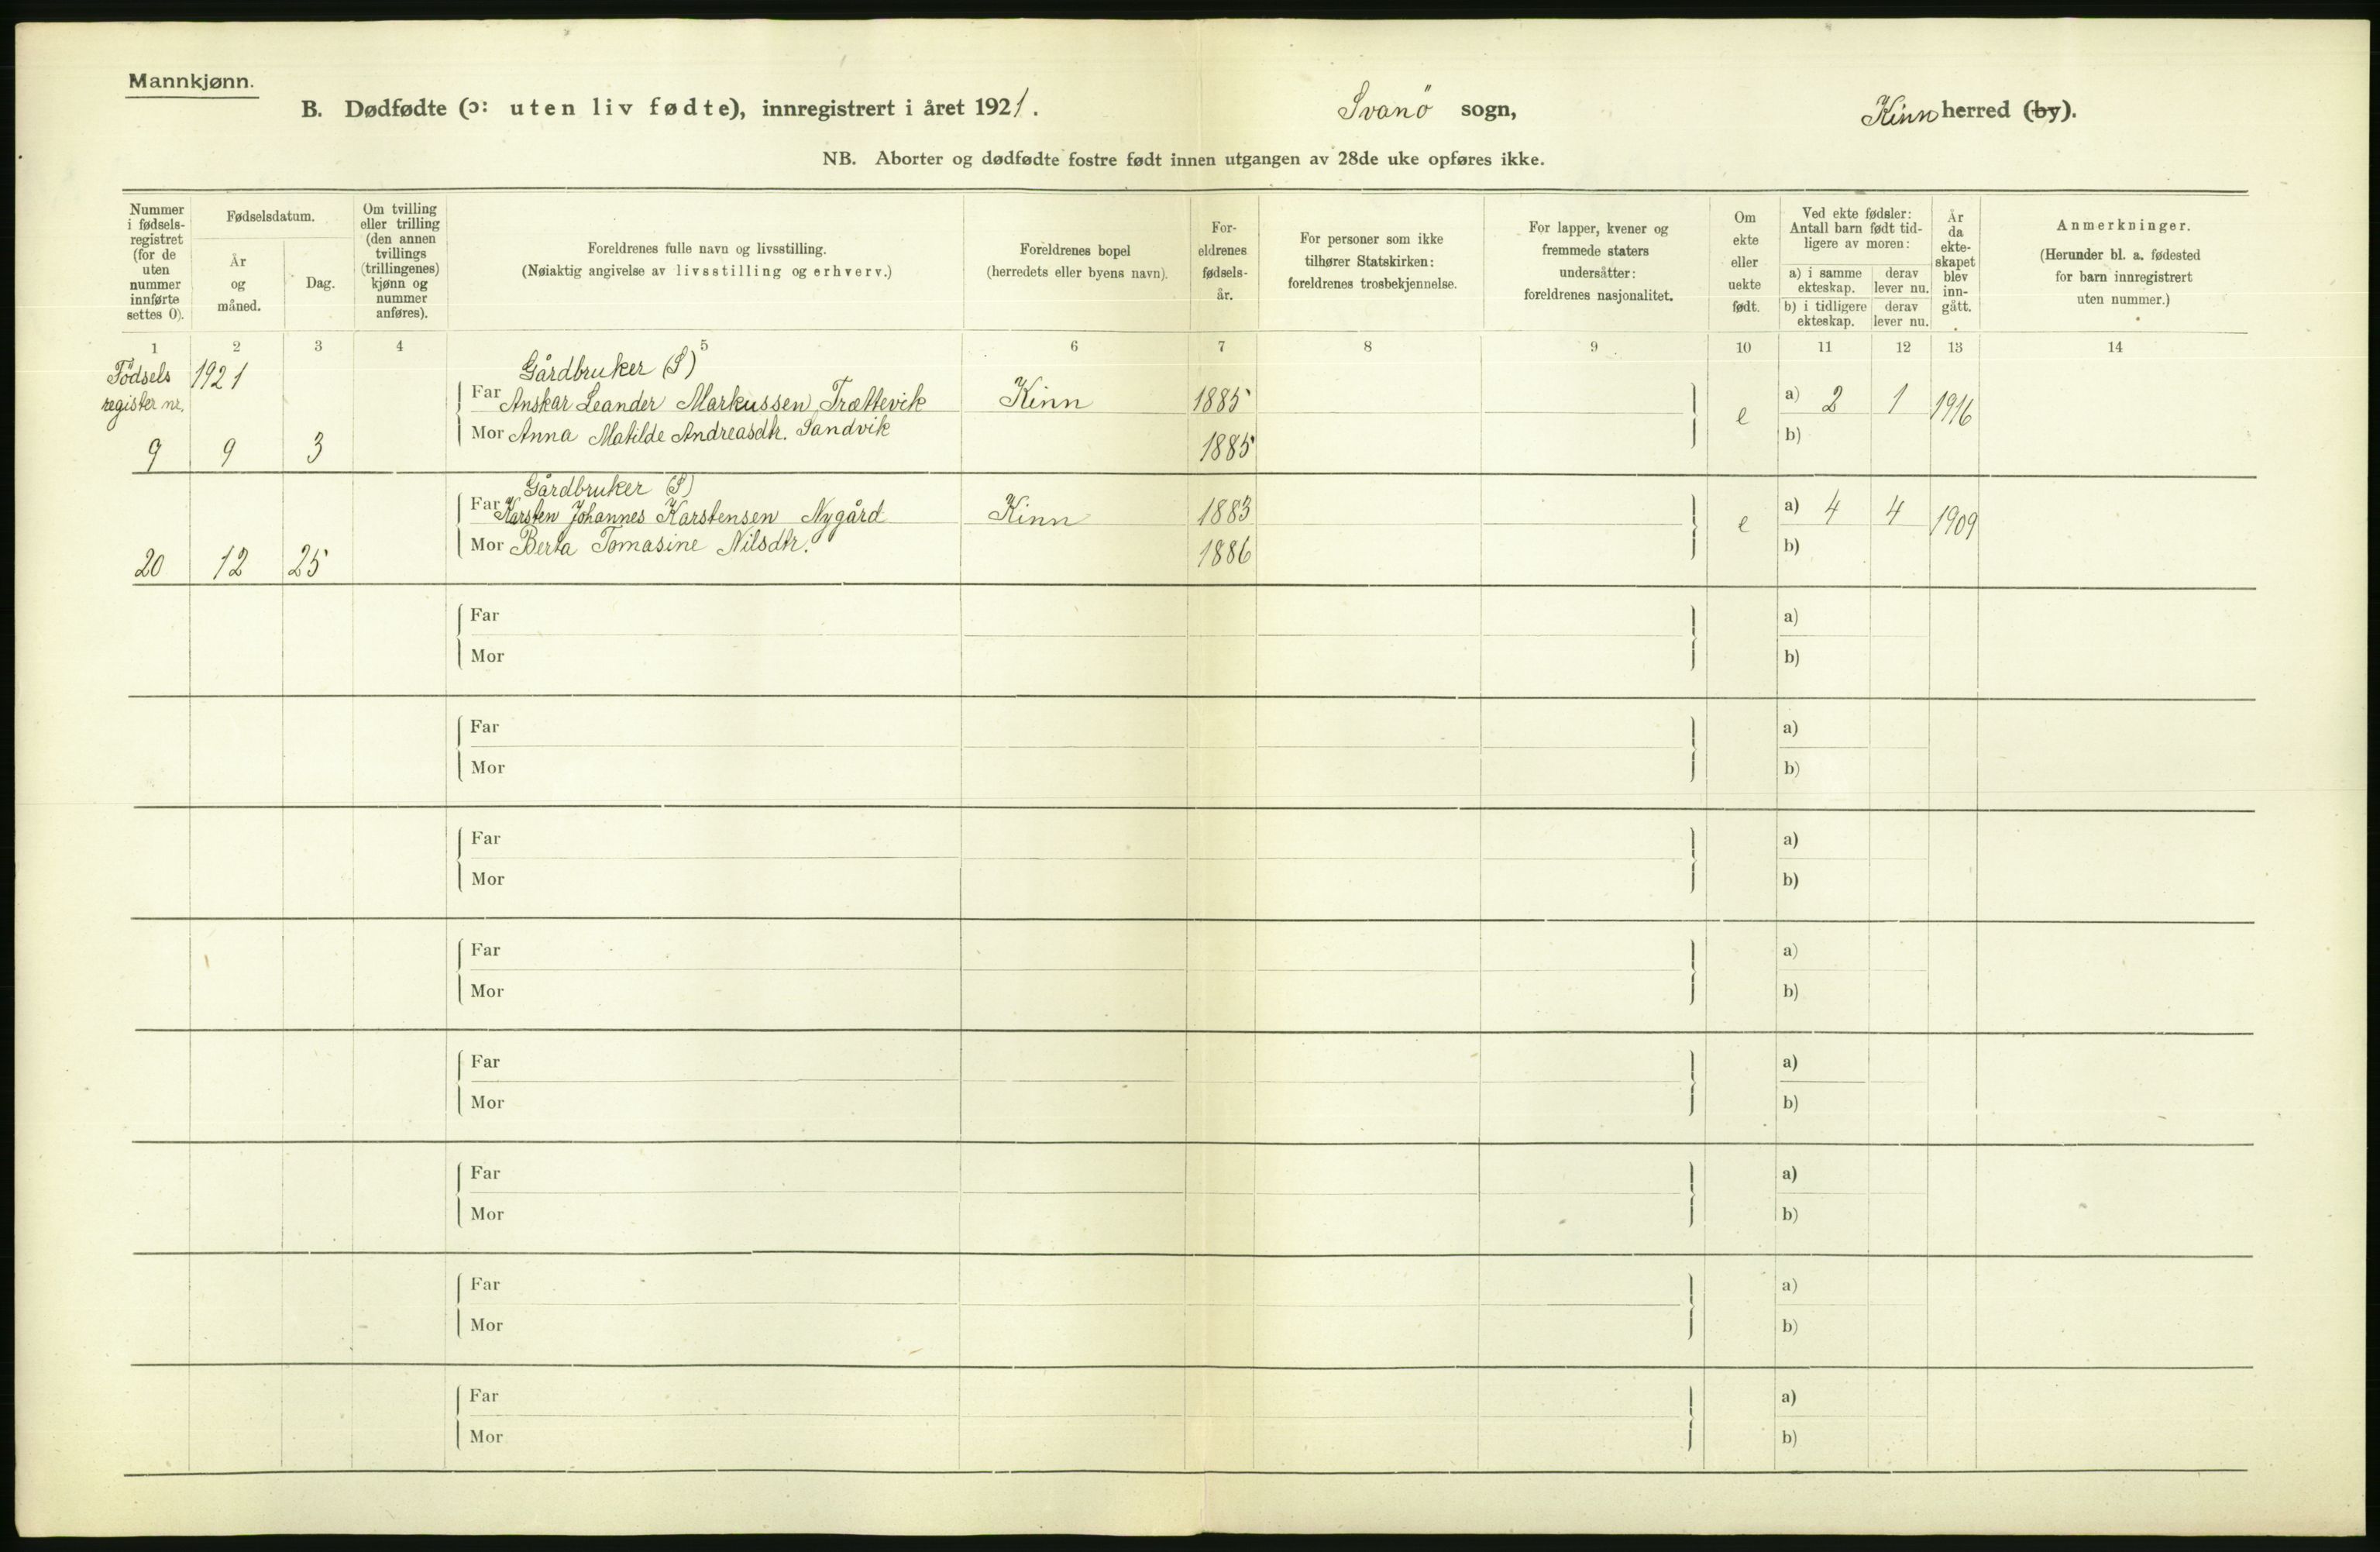 Mannkjønn.
B. Dødfødte (ɔ: uten liv fødte), innregistrert i året 1921. Svanö sogn, Kinn herred (by).
NB. Aborter og dødfødte fostre født innen utgangen av 28de uke opføres ikke.
Nummer i fødsels-registret (for de uten nummer innførte settes 0).
Fødselsdatum.
År og måned.
Dag.
Om tvilling eller trilling (den annen tvillings (trillingenes) kjønn og nummer anføres).
Foreldrenes fulle navn og livsstilling.
(Nøiaktig angivelse av livsstilling og erhverv.)
Foreldrenes bopel
(herredets eller byens navn).
For-eldrenes fødsels-år.
For personer som ikke tilhører Statskirken: foreldrenes trosbekjennelse.
For lapper, kvener og fremmede staters undersåtter: foreldrenes nasjonalitet.
Om ekte eller uekte født.
Ved ekte fødsler: Antall barn født tid-ligere av moren:
a) i samme ekteskap.
derav lever nu.
b) i tidligere ekteskap.
derav lever nu.
År da ekte-skapet blev inn-gått.
Anmerkninger.
(Herunder bl. a. fødested for barn innregistrert uten nummer.)
1 2 3 4 5 6 7 8 9 10 11 12 13 14
Födsels 1921 Gårdbruker (S)
register nr. Far Anskar Leander Markussen Trættevik Kinn 1885 e a) 2 1 1916
Mor Anna Matilde Andreasdtr. Sandvik b)
9 9 3 1885
Gårdbruker (S)
Far Karsten Johannes Karstensen Nygård Kinn 1883 e a) 4 4 1909
Mor Berta Tomasine Nilsdtr. b)
20 12 25 1886
Far a)
Mor b)
Far a)
Mor b)
Far a)
Mor b)
Far a)
Mor b)
Far a)
Mor b)
Far a)
Mor b)
Far a)
Mor b)
Far a)
Mor b)